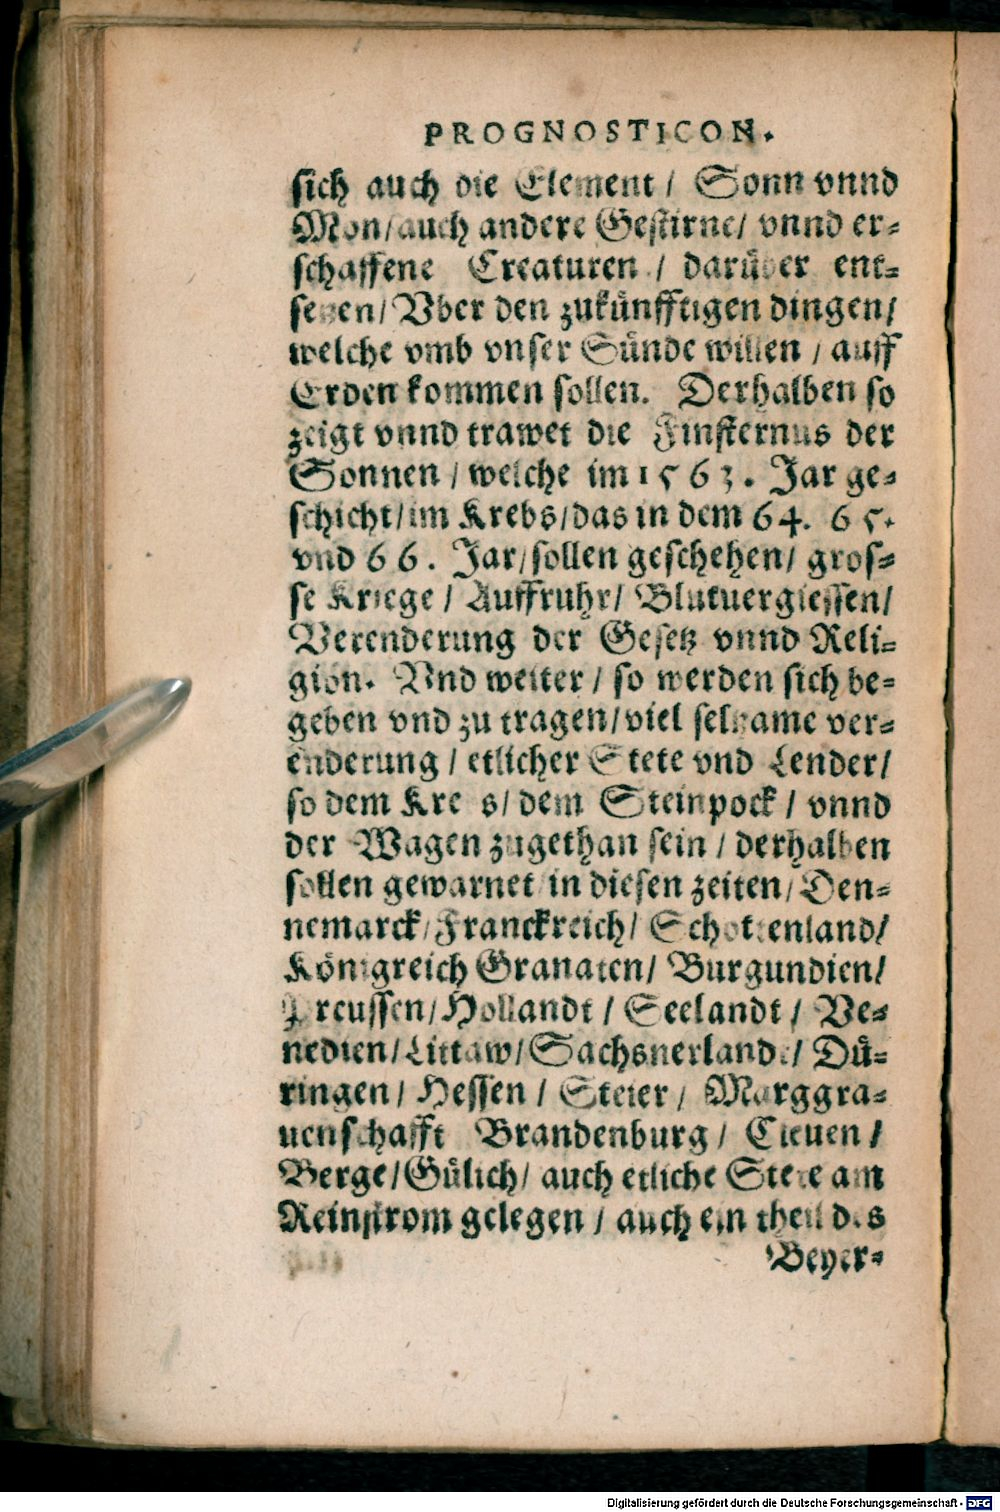 PROGNOSTICON.
sich auch die Element / Sonn vnnd
Mon/auch andere Gestirne/ vnnd er⸗
schaffene Creaturen / darüber ent⸗
setzen/ Vber den zukünfftigen dingen/
welche vmb vnser Sünde willen / auff
Erden kommen sollen. Derhalben so
zeigt vnnd trawet die Finsternus der
Sonnen / welche im 1563. Jar ge⸗
schicht/im Krebs/das in dem 64. 65.
vnd 66. Jar/sollen geschehen/ gros⸗
se Kriege / Auffruhr/ Blutuergiessen/
Verenderung der Gesetz vnnd Reli⸗
gion. Vnd weiter / so werden sich be⸗
geben vnd zu tragen/viel seltzame ver⸗
enderung / etlicher Stete vnd Lender/
so dem Krebs/ dem Steinpock / vnnd
der Wagen zugethan sein / derhalben
sollen gewarnet in diesen zeiten/ Den⸗
nemarck/Franckreich/ Schottenland/
Königreich Granaten/ Burgundien/
Preussen/Hollandt / Seelandt / Ve⸗
nedien/Littaw/Sachsnerlande/ Dü⸗
ringen / Hessen / Steier / Marggra⸗
uenschafft Brandenburg / Cleuen /
Berge/Gülich/ auch etliche Stete am
Reinstrom gelegen / auch ein theil des
Beyer⸗
Digitalisierung gefördert durch die Deutsche Forschungsgemeinschaft - DFG